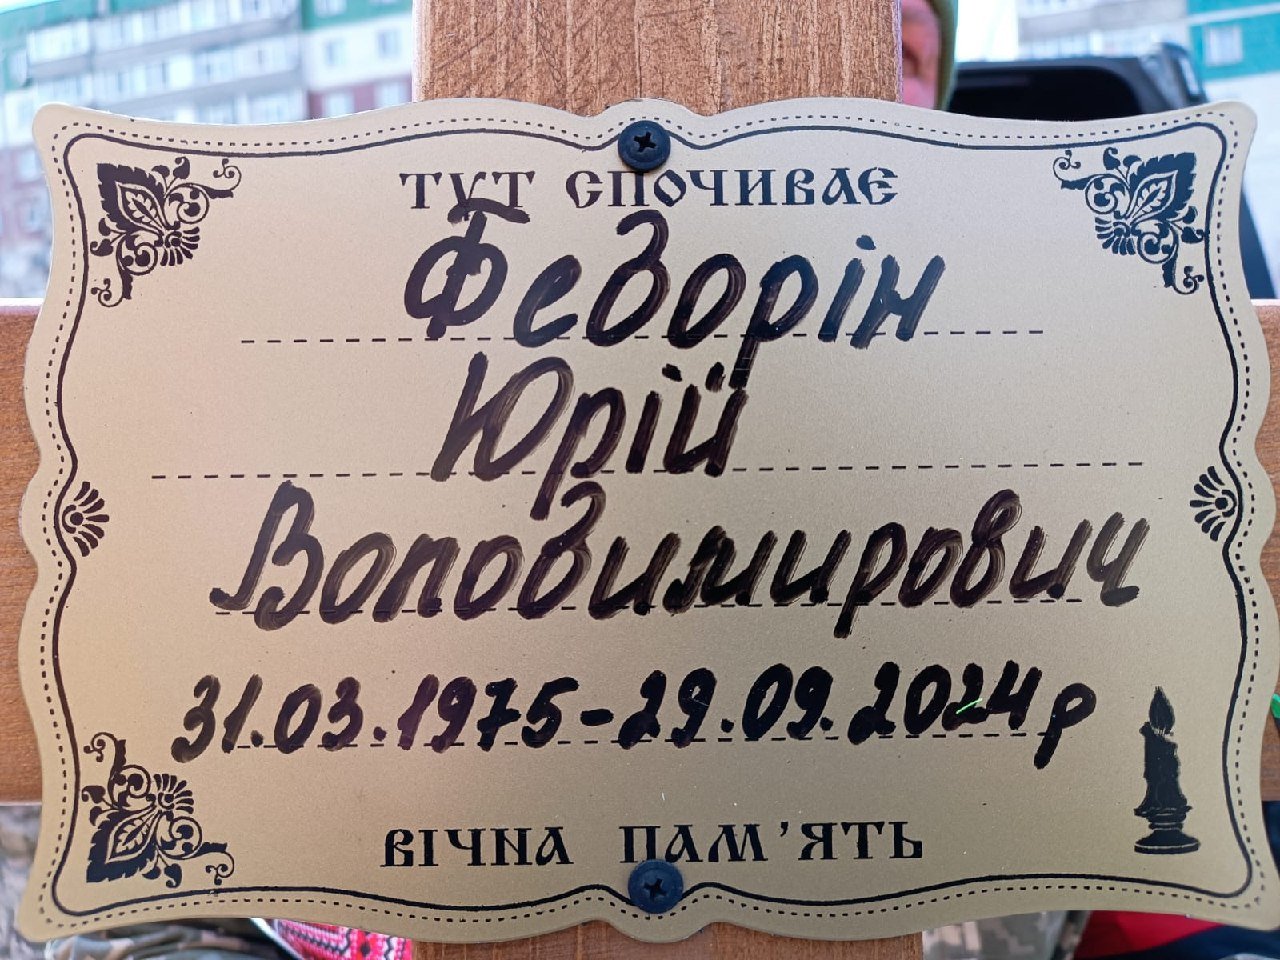 ТУТ СПОЧИВАЄ
Федорін
Юрій
Володимирович
31.03.1975-29.09.2024р
ВІЧНА ПАМ'ЯТЬ